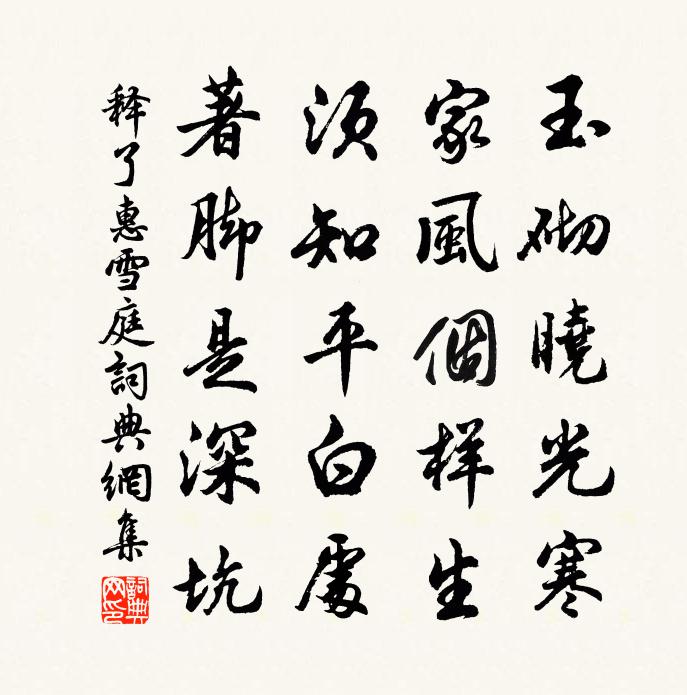 玉砌曉光寒
家風個样生
須知平白處
著脚是深坑
释了惠雪庭詞典網集
詞典網印